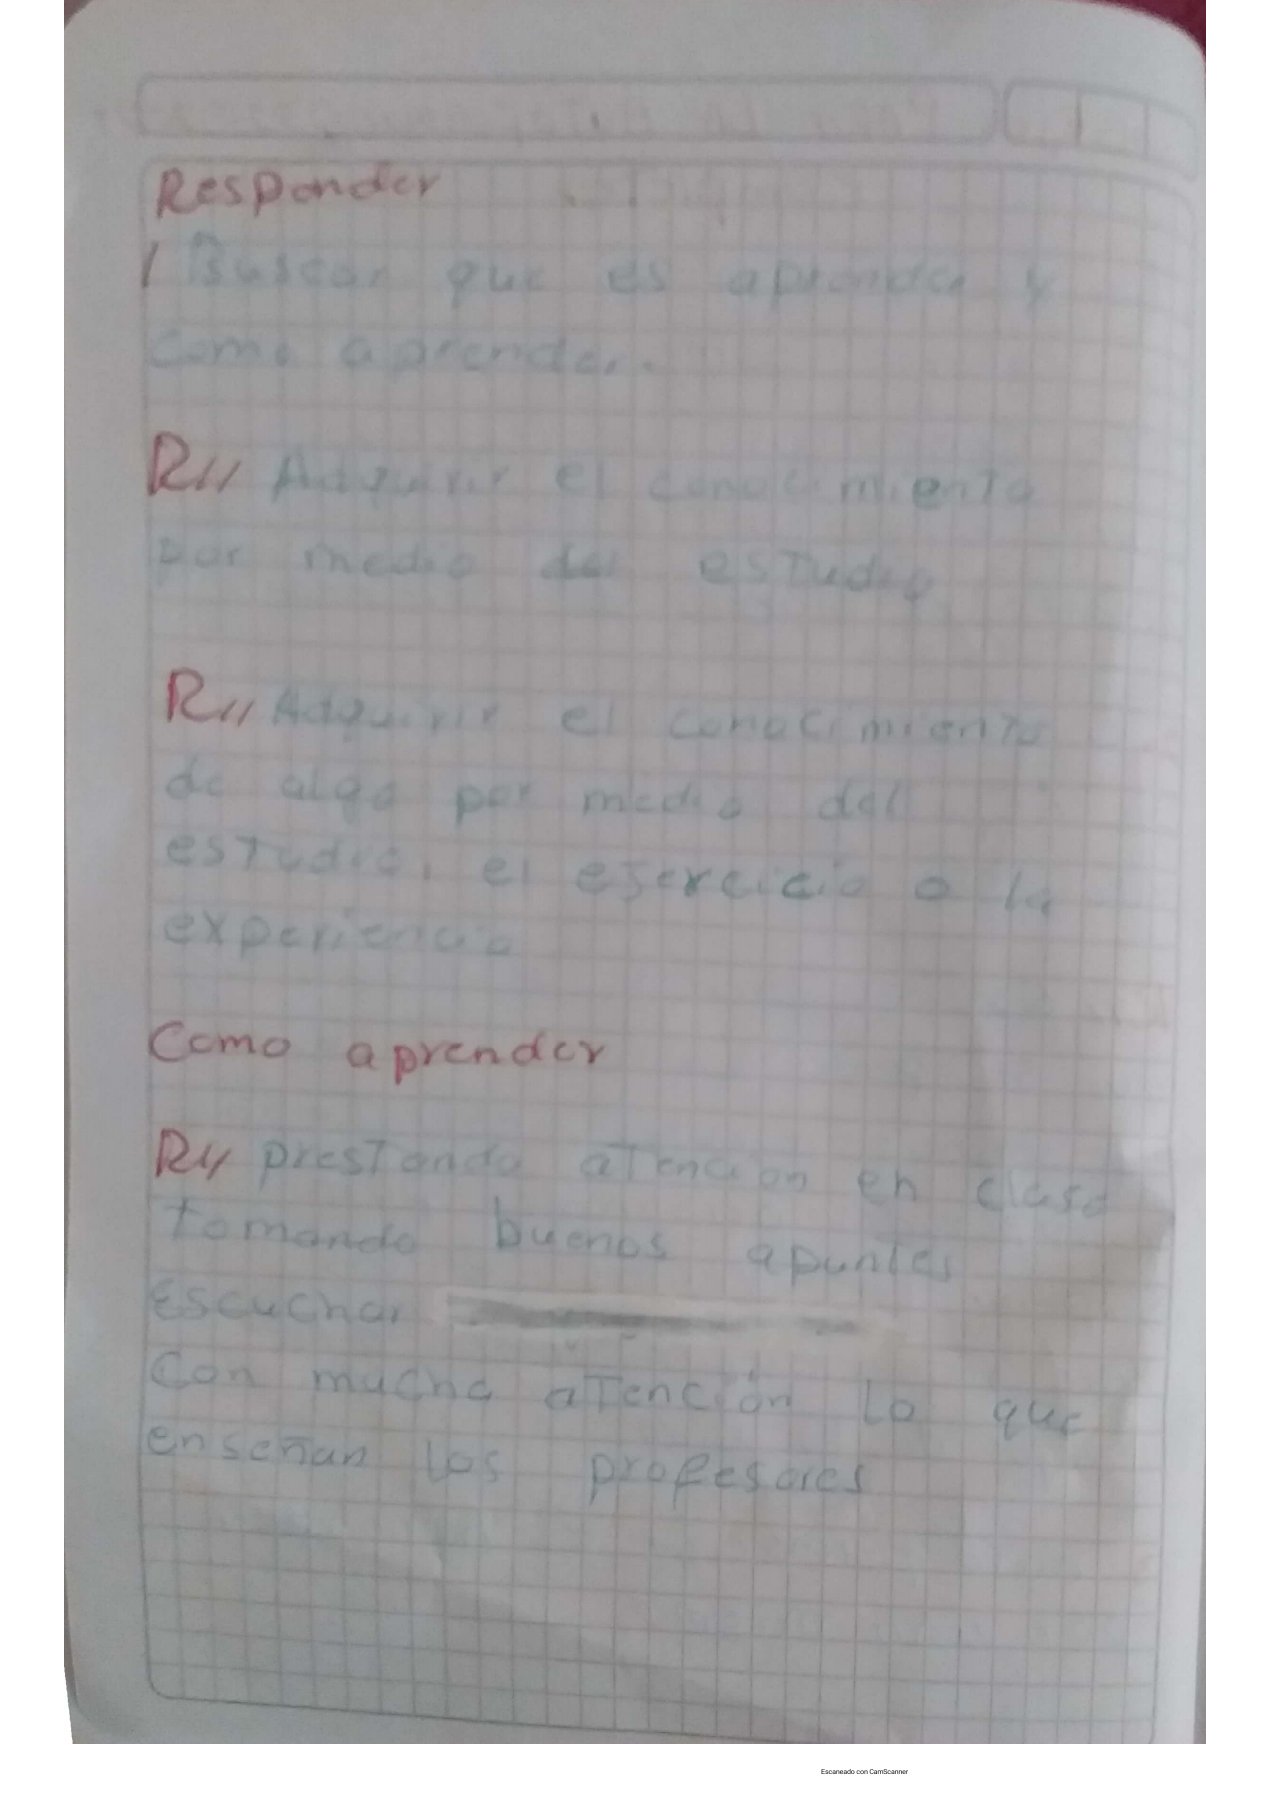 Responder
1 Buscar que es aprender y
como aprender.
R// Adquirir el conocimiento
por medio del estudio
R// Adquirir el conocimiento
de algo por medio del
estudio, el ejercicio o la
experiencia
Como aprender
R// prestando atencion en clase
tomando buenos apuntes
Escuchar
Con mucha atención lo que
enseñan los profesores
Escaneado con CamScanner